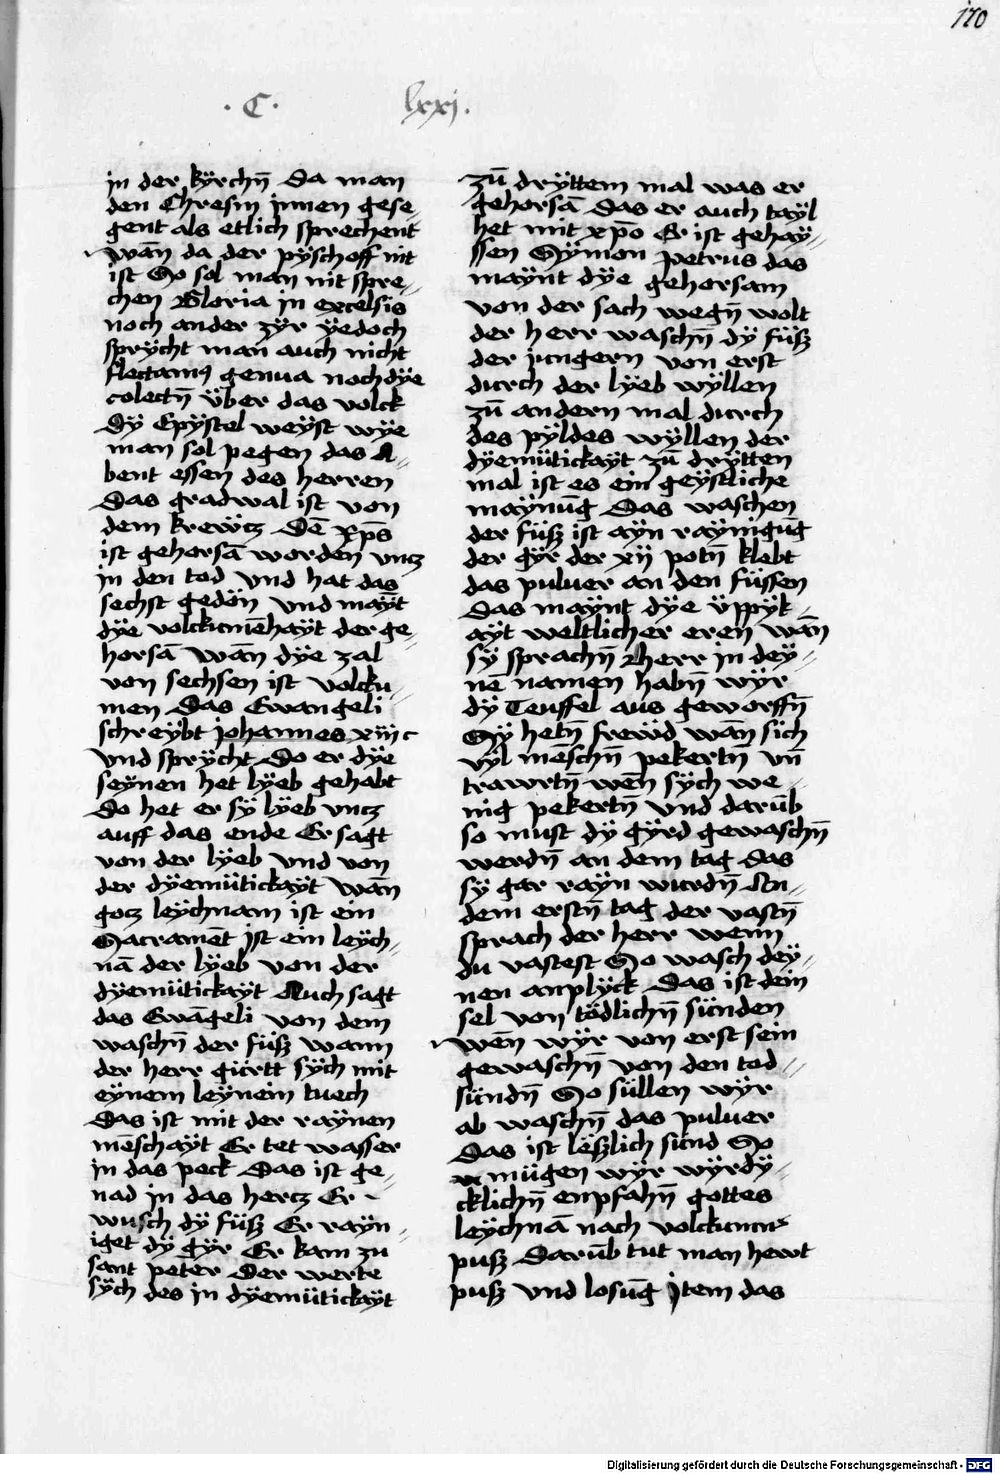 170
· C · lxxj ·
in der kÿrchn̄ Da man
den Chresm jnnen gese⸗
gent als etlich sprechent
wan̄ da der pÿschoff nit
ist So sol man nit spre⸗
chen Gloria in excelsis
noch ander zÿr ÿedoch
sprÿcht man auch nicht
flectamꝰ genua noch dÿe
colectn̄ ÿber das volck
Dÿ Epÿstel weÿst wÿe
man sol pegen das A⸗
bent essen des herren
Das gradwal ist von
dem krewtz Dē xp̄s
ist gehorsā worden vntz
in den tod Vnd hat das
sechst gedön Vnd maÿt
dÿe volckumēhaÿt der ge⸗
horsā wan̄ dÿe zal
von sechsen ist volcku⸗
men Das Ewangeli
schreÿbt johannes xiij c
Vnd sprÿcht Do er dÿe
seÿnen het lÿeb gehabt
Do het er sÿ lÿeb vntz
auff das ende Er sagt
von der lÿeb Vnd von
der dÿemütickaÿt wan̄
gotz leÿchnam ist ein
Sacramēt jst ein leÿch⸗
nā der lÿeb von der
dÿemütickaÿt Auch sagt
das Ewāgeli von dem
waschn̄ der füß wann
der herr gürtt sÿch mit
eÿnem leÿnein tuech
Das ist mit der raÿnen
mēschaÿt Er tet wasser
in das peck Das ist ge⸗
nad in das hertz Er
wusch dÿ füß Er raÿn⸗
iget dÿ gÿr Er kam zu
sant peter Der werte
sÿch des in dÿemütickaÿt
zū drÿttem mal was er
gehorsā Das er auch taÿl
het mit xp̄o Er ist gehaÿ⸗
ssen Sÿmon petrus das
maÿnt dÿe gehorsam
von der sach wegn̄ wolt
der herr waschn̄ dÿ füß
der jungern von erst
durch der lÿeb wÿllen
zū andern mal durch
des pÿldes wÿllen der
dÿemütickaÿt zū drÿtten
mal ist es ein geÿstliche
maÿnūg Das waschen
der füß ist aÿn raÿnigūg
der gÿr der xij potn̄ klebt
das puluer an den füssen
Das maÿnt dÿe üppÿk⸗
aÿt weltlicher eren wan̄
sÿ sprachn̄ herr in deÿ⸗
nē namen habn̄ wÿr
dÿ Teuffel aus geworffn̄
Sÿ hetn̄ frewd wan̄ sich
vÿl mēschn̄ pekertn̄ vn̄
trawrtn̄ wen̄ sÿch we⸗
nig pekertn̄ Vnd darūb
so must dÿ gÿrd gewaschn̄
werdn̄ an dem tag Das
sÿ gar raÿn wurdn̄ An⸗
dem erstn̄ tag der vastn̄
sprach der herr wenn
du vastest So wasch deÿ⸗
nen anplÿck Das ist dein
sel von tödlichn̄ sünden
wen̄ wÿr von erst sein
gewaschn̄ von den tod⸗
sündn̄ So süllen wÿr
ab waschn̄ das puluer
Das ist leßlich sünd So
mügen wÿr wÿrdÿ⸗
cklichn̄ enpfahn̄ gottes
leÿchnā nach volckumns
puß Darūb tut man hewt
puß Vnd losūg jtem das
Digitalisierung gefördert durch die Deutsche Forschungsgemeinschaft - DFG